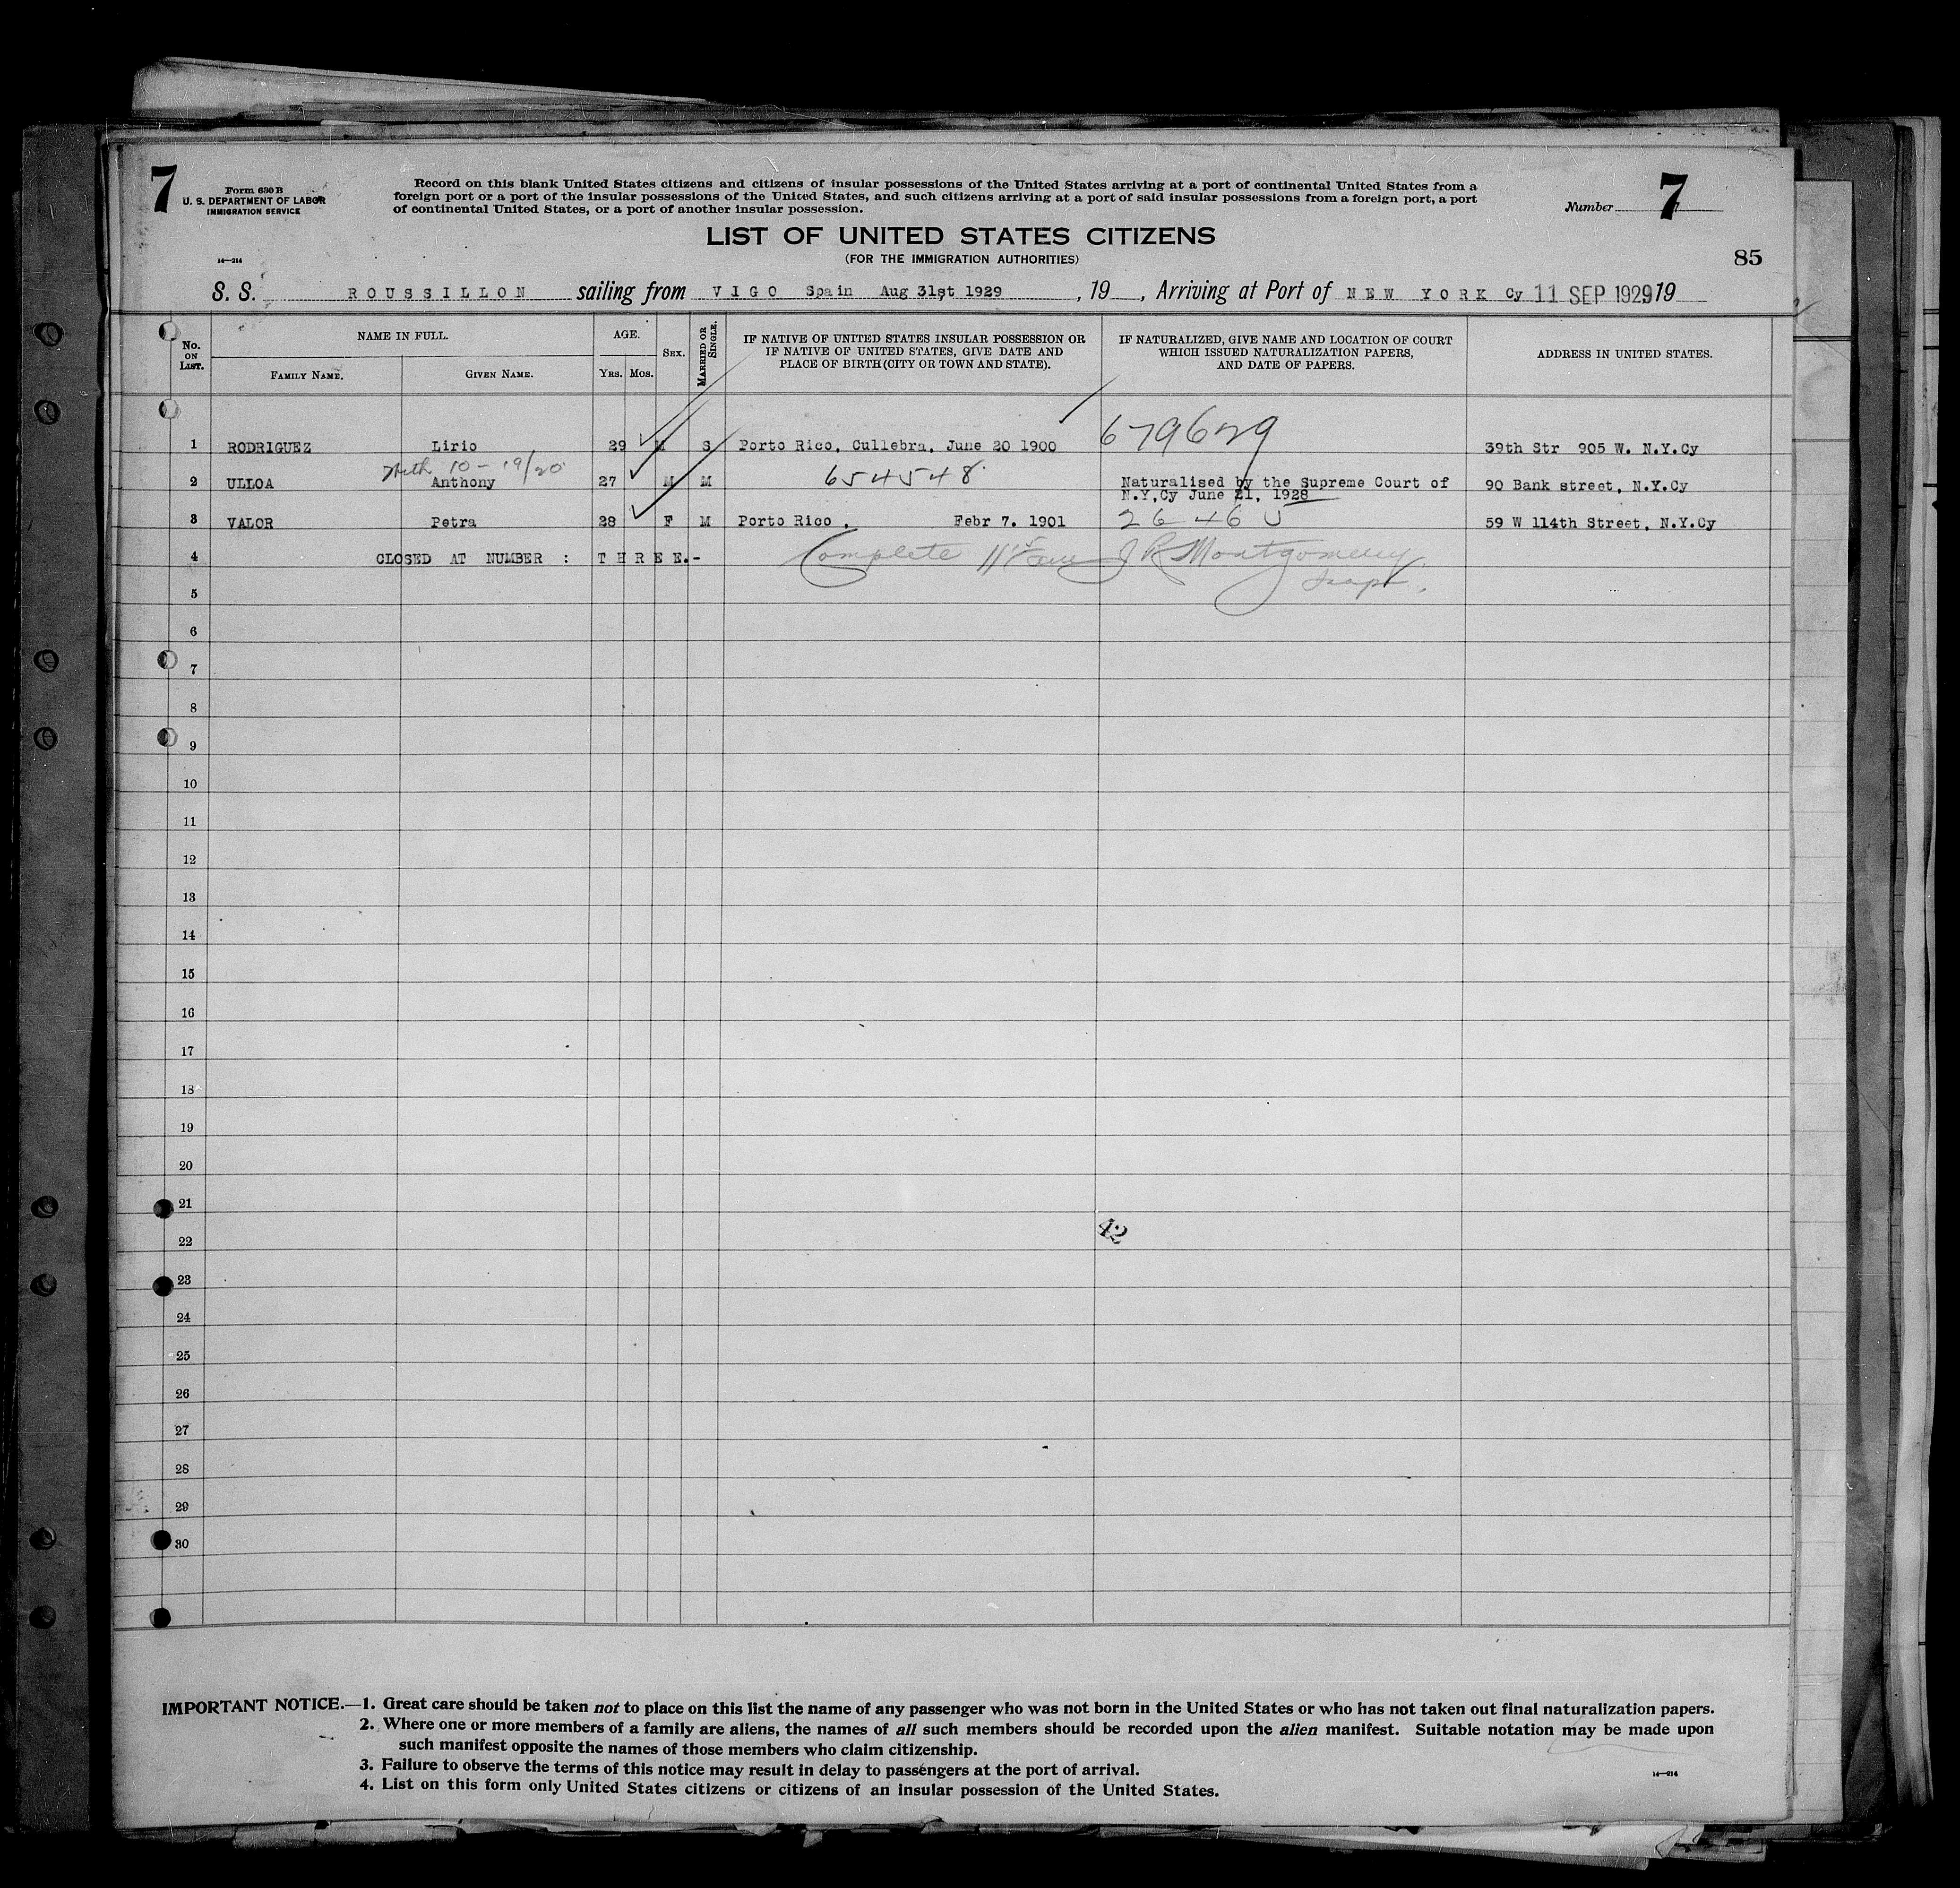 7
Form 630 B
U. S. DEPARTMENT OF LABOR
IMMIGRATION SERVICE
Record on this blank United States citizens and citizens of insular possessions of the United States arriving at a port of continental United States from a
foreign port or a port of the insular possessions of the United States, and such citizens arriving at a port of said insular possessions from a foreign port, a port
of continental United States, or a port of another insular possession.
Number 7
LIST OF UNITED STATES CITIZENS
(FOR THE IMMIGRATION AUTHORITIES)
85
14—214
S. S. ROUSSILLON sailing from VIGO Spain Aug 31st 1929 , 19 , Arriving at Port of NEW YORK Cy 11 SEP 1929 19
No. ON LIST.
NAME IN FULL.
FAMILY NAME.
GIVEN NAME.
AGE.
YRS. MOS.
SEX.
MARRIED OR SINGLE.
IF NATIVE OF UNITED STATES INSULAR POSSESSION OR
IF NATIVE OF UNITED STATES, GIVE DATE AND
PLACE OF BIRTH (CITY OR TOWN AND STATE).
IF NATURALIZED, GIVE NAME AND LOCATION OF COURT
WHICH ISSUED NATURALIZATION PAPERS,
AND DATE OF PAPERS.
ADDRESS IN UNITED STATES.
679629
1 RODRIGUEZ Lirio 29 M S Porto Rico, Cullebra, June 20 1900 39th Str 905 W. N.Y.Cy
10-19/20
2 ULLOA Anthony 27 M M 654548 Naturalised by the Supreme Court of 90 Bank street, N.Y.Cy
N.Y,Cy June 21, 1928
3 VALOR Petra 28 F M Porto Rico , Febr 7. 1901 59 W 114th Street, N.Y.Cy
4 CLOSED AT NUMBER : THREE.- Complete J R Montgomery
Insp.
5
6
7
8
9
10
11
12
13
14
15
16
17
18
19
20
21
42
22
23
24
25
26
27
28
29
30
IMPORTANT NOTICE.—1. Great care should be taken not to place on this list the name of any passenger who was not born in the United States or who has not taken out final naturalization papers.
2. Where one or more members of a family are aliens, the names of all such members should be recorded upon the alien manifest. Suitable notation may be made upon
such manifest opposite the names of those members who claim citizenship.
3. Failure to observe the terms of this notice may result in delay to passengers at the port of arrival.
4. List on this form only United States citizens or citizens of an insular possession of the United States.
14—214